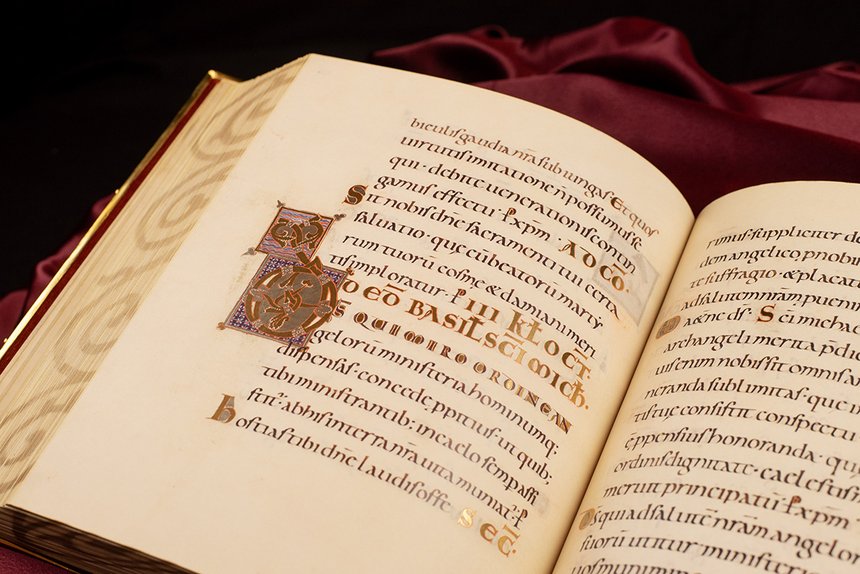 biculis gaudia nr̄a subiungas Et quos
uirtutis imitatione n̄ possumus se
qui · debite uenerationis contin
gamus effectu · P xp̄m · AD CŌ.
Sit nobis dn̄e sacramenti tui certa
saluatio · que cū beatorū marty
rum tuorū cosme & damiani meri
tis imploratur · P III KL̄ OCT̄.
DED̄ BASIL SCĪ MICH.
D̄S QUI MIRO ORDINE AN
gelorū ministeria hominumq;
dispensas · concede ppitius · ut quib;
tibi ministrantib; in caelo semp assi
stit · ab his in terra nr̄a uita muniat · P
hostias tibi dn̄e laudis offe SEC̄.
rimus suppliciter
dem angelico p nobis
te suffragio · & placat
ad salutē nr̄am
aetne ds̄ · Sc̄i micha
archangeli merita
ut sic enim nobis sit omnis
neranda sublimitas · que
tis tuę consistit conspectu
ę p pensius honoranda · qui
ordinis dignitate · caelestis
meruit principatū · P xp̄m
D̄s qui ad salutē nr̄am angelo
suorū utitur minister